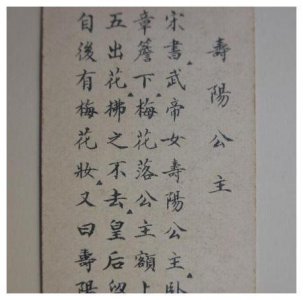 壽陽公主
宋書武帝女壽陽公主臥
章簷下梅花落公主額上
五出花拂之不去皇后留
自後有梅花妝又曰壽陽